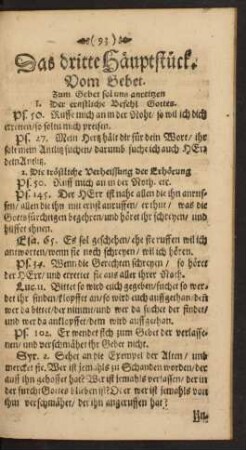 (93)
Das dritte Häuptstück.
Vom Gebet.
Zum Gebet sol uns anreitzen
1. Der ernstliche Befehl Gottes.
Ps. 50. Ruffe mich an in der Noht/ so wil ich dich
erretten/so soltu mich preisen.
Ps. 27. Mein Hertz hält dir für dein Wort/ ihr
solt mein Antlitz suchen/ darumb suche ich auch HErr
dein Antlitz.
2. Die tröstliche Verheissung der Erhörung
Ps. 50. Ruff mich an in der Noth. etc.
Ps. 145. Der HErr ist nahe allen die ihn anruf-
fen/ allen die ihn mit ernst anruffen/ er thut/ was die
Gottsfürchtigen begehren/und höret ihr schreyen/ und
hilffet ihnen.
Esa. 65. Es sol geschehen/ ehe sie ruffen wil ich
antworten/wenn sie noch schreyen/ wil ich hören.
Ps. 34. Wenn die Gerechten schreyen/ so höret
der HErr/ und errettet sie aus aller ihrer Noth.
Luc. 11. Bittet so wird euch gegeben/suchet so wer-
det ihr finden/klopffet an/ so wird euch auffgethan/denn
wer da bittet/der nimmt/und wer da suchet der findet/
und wer da anklopffet/dem wird auffgethan.
Ps. 102. Er wendet sich zum Gebet der verlasse-
nen/ und verschmähet ihr Gebet nicht.
Syr. 2. Sehet an die Exempel der Alten/ und
mercket sie. Wer ist jemahls zu Schanden worden/ der
auff ihn gehoffet hat? Wer ist jemahls verlassen/ der in
der furcht Gottes blieben ist? Oder wer ist jemahls von
ihm verschmähet/ der ihn angeruffen hat?